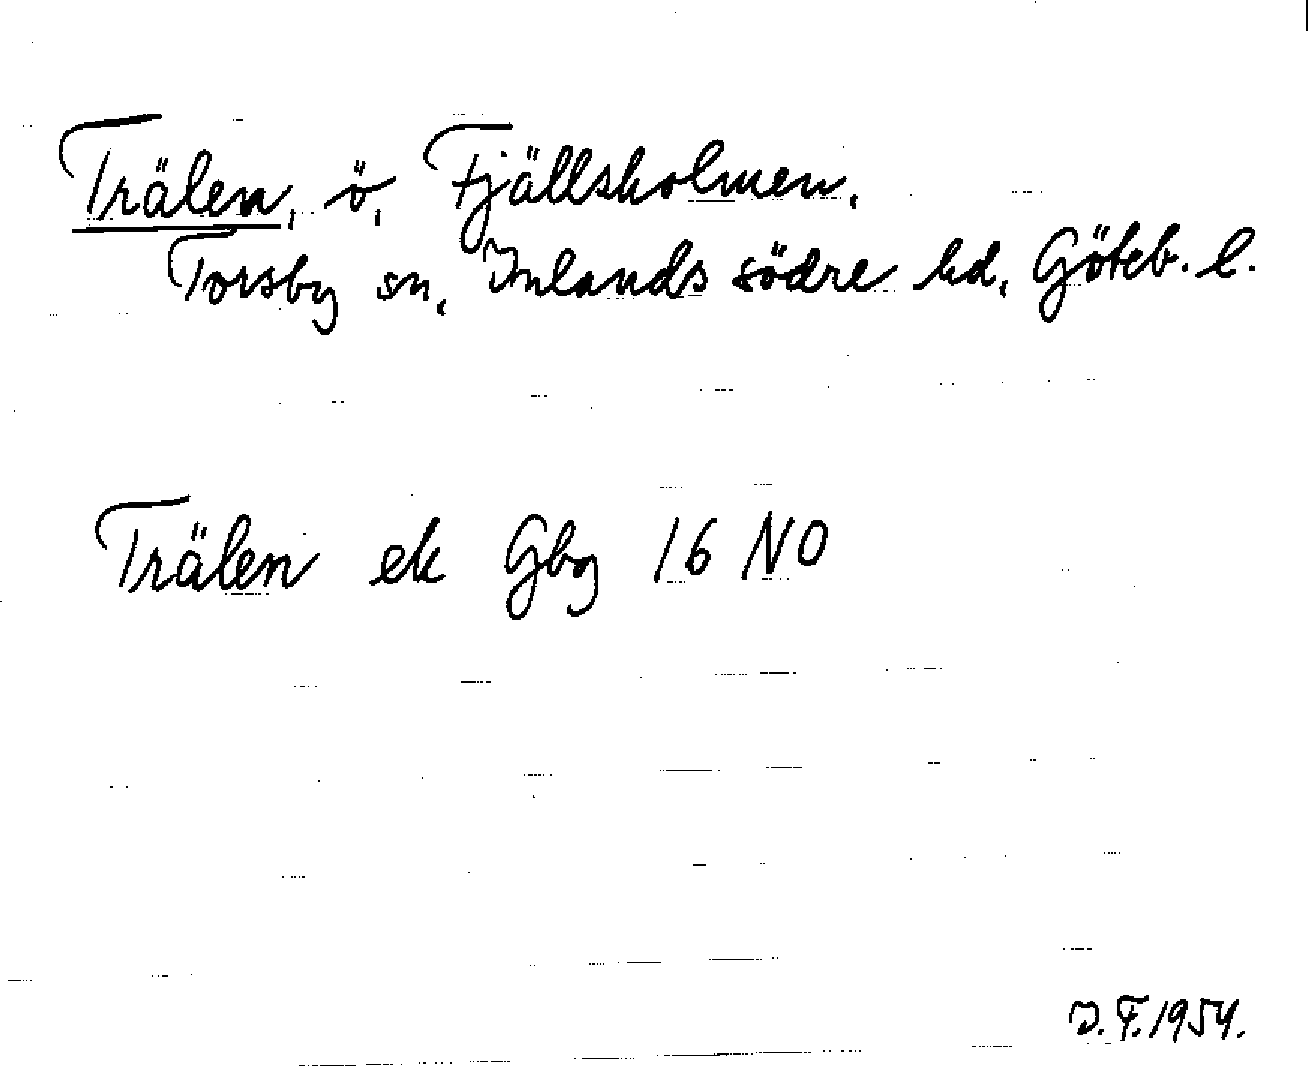 Trälen, ö, Fjällsholmen,
Torsby sn, Inlands södre hd, Göteb. l.
Trälen ek Gbg 16 NO
I. F. 1954.